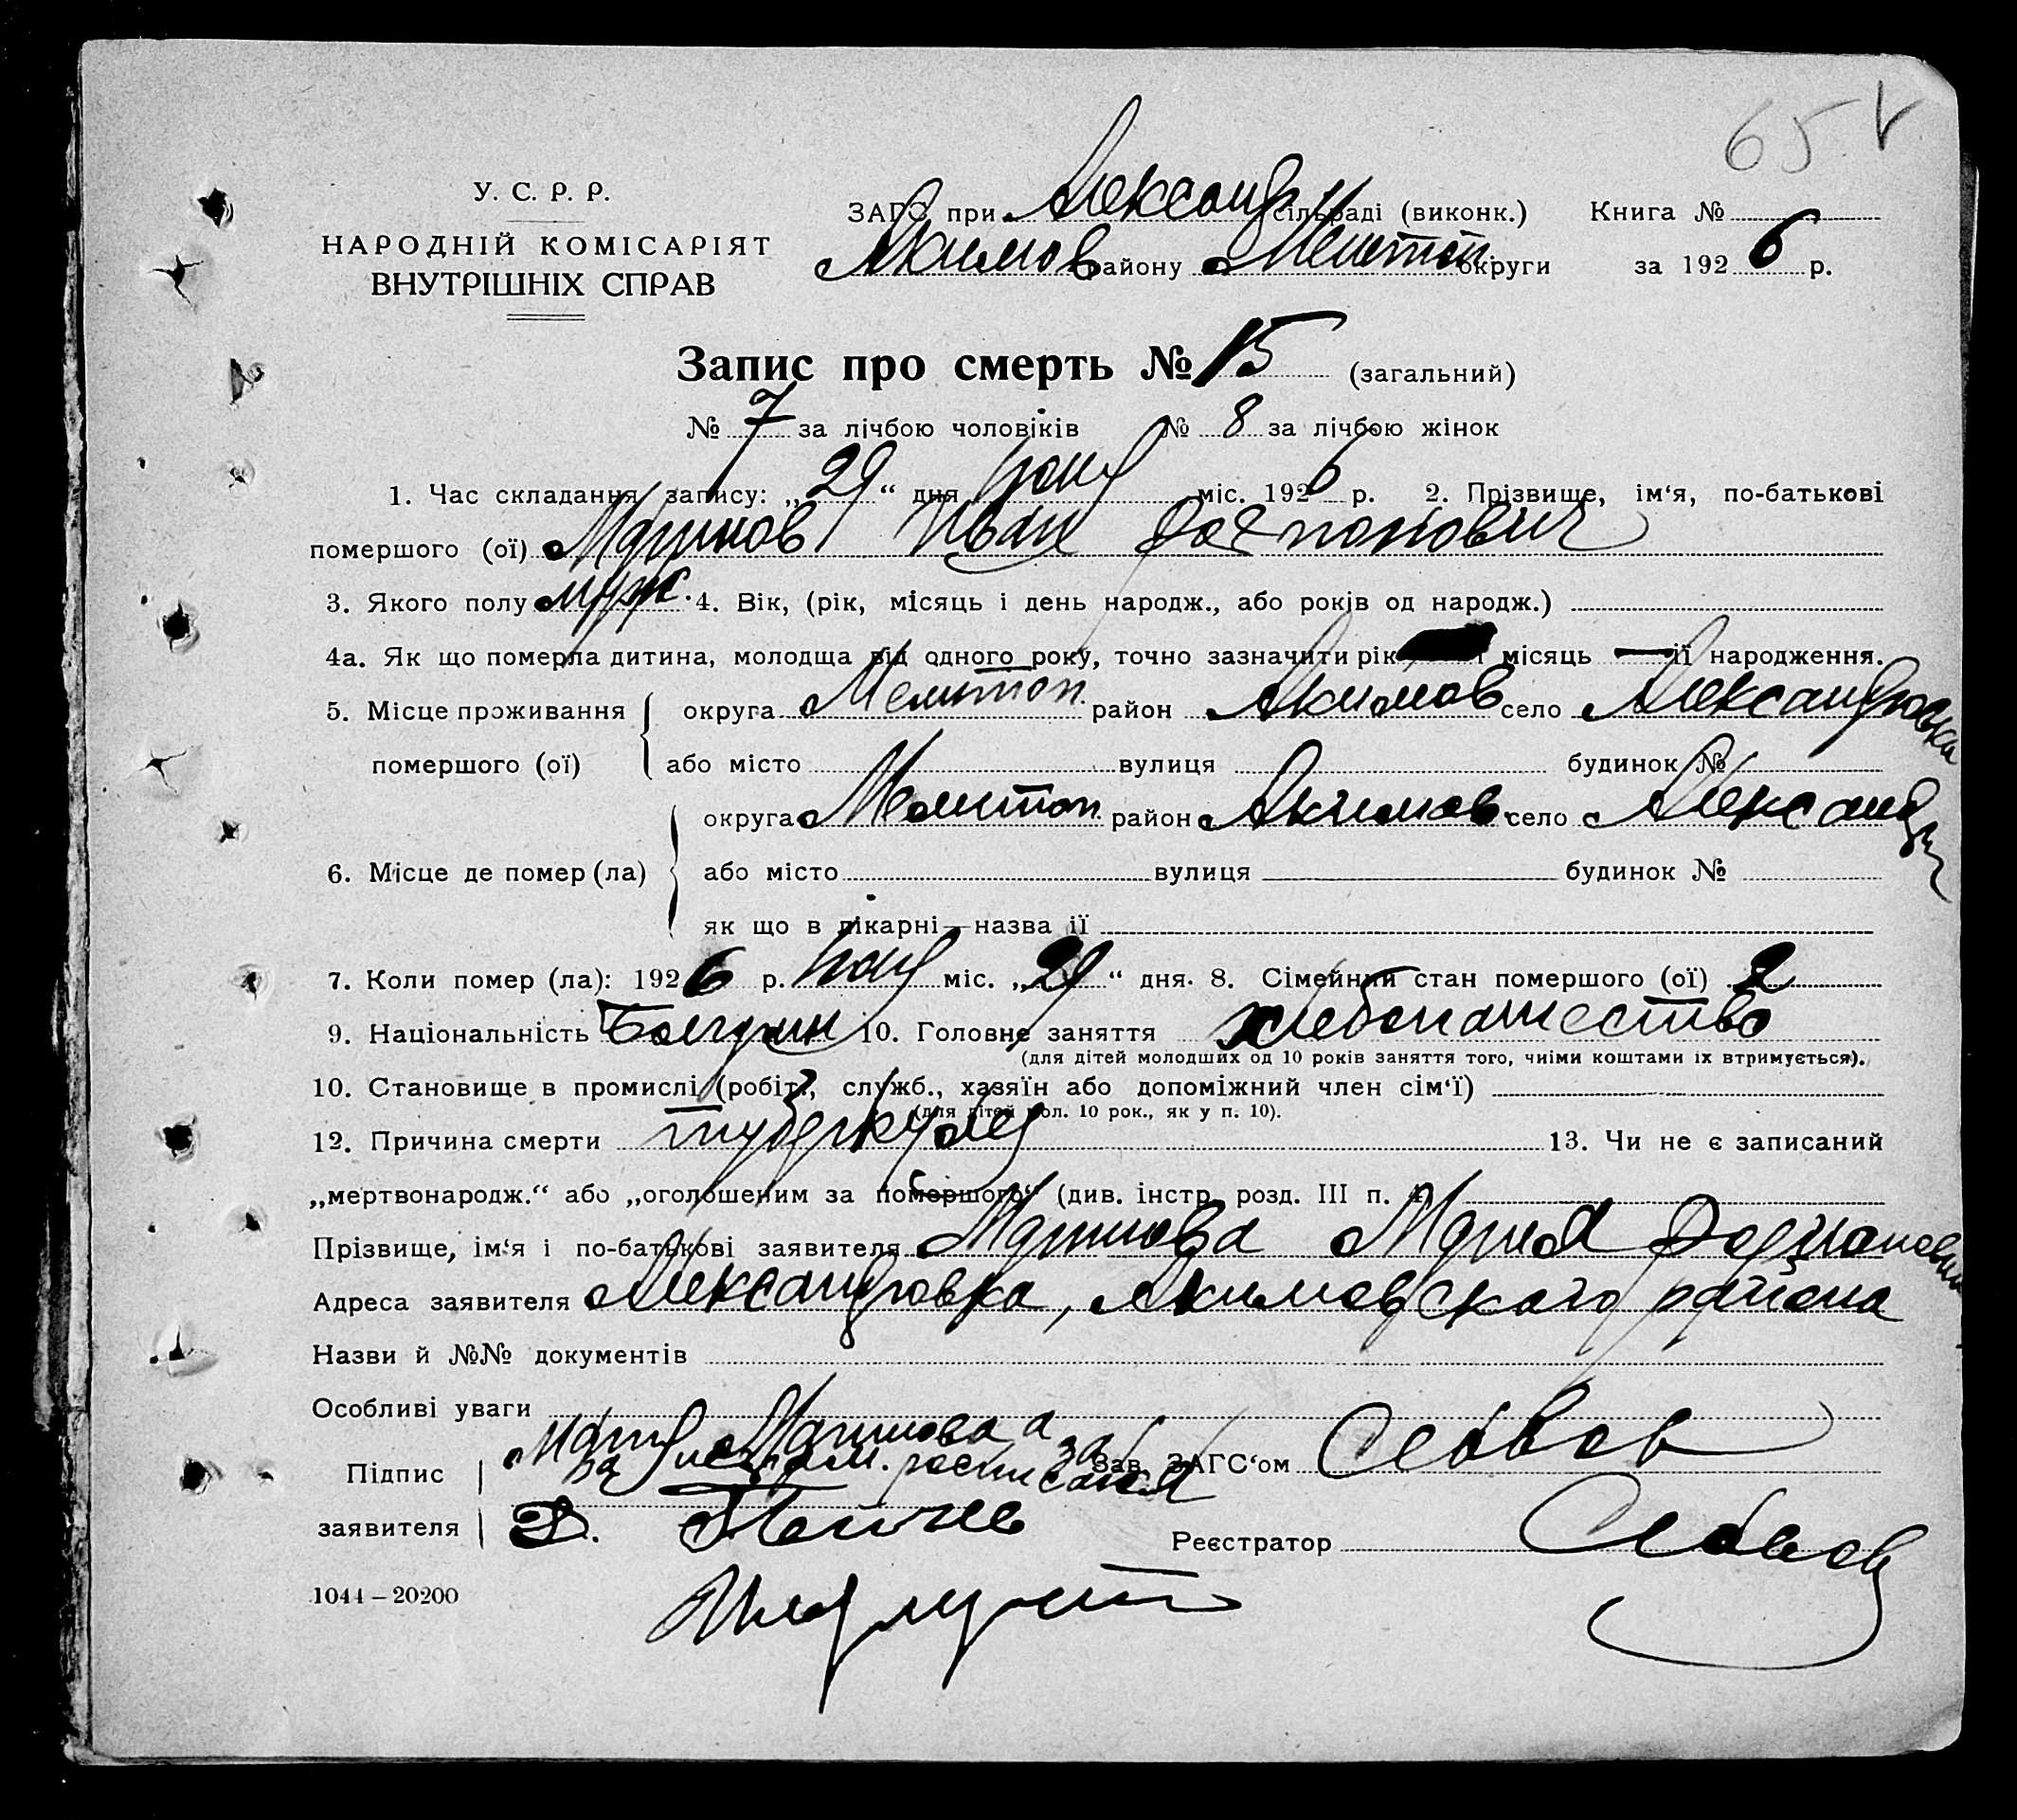 65
У. С. Р. Р.
НАРОДНІЙ КОМІСАРІЯТ
ВНУТРІШНІХ СПРАВ
ЗАГС при Александ сільраді (виконк.) Книга №
Акимов району Мелитоп. округи за 1926 р.
Запис про смерть № 15 (загальний)
№ 7 за лічбою чоловіків № 8 за лічбою жінок
1. Час складання запису: „29“ дня міс. 1926 р. 2. Прізвище, ім‘я, по-батькові
помершого (ої) Маринов Иван
3. Якого полу муж. 4. Вік, (рік, місяць і день народж., або років од народж.)
4а. Як що померла дитина, молодща від одного року, точно зазначити рік місяць її народження.
5. Місце проживання округа Мелитоп. район Акимов село Александровка
помершого (ої) або місто вулиця будинок №
округа Мелитоп. район Акимов. село Александр
6. Місце де помер (ла) або місто вулиця будинок №
як що в лікарні—назва ії
7. Коли помер (ла): 1926 р. міс. „29“ дня. 8. Сімейний стан помершого (ої) 2
9. Національність Болгарин 10. Головне заняття хлебопашество
(для дітей молодших од 10 років заняття того, чиїми коштами їх втримується).
10. Становище в промислі (робіт., служб., хазяїн або допоміжний член сім‘ї)
(для дітей мол. 10 рок., як у п. 10).
12. Причина смерти туберкулез 13. Чи не є записаний
„мертвонародж.“ або „оголошеним за помершого“ (див. інстр. розд. III п. 4)
Прізвище, ім‘я і по-батькові заявителя Маринова Мария
Адреса заявителя Александровка, Акимовского района
Назви й №№ документів
Особливі уваги
Маринова а за
Підпис неграм. расписался Зав. ЗАГС‘ом
заявителя Д.
Реєстратор
1044 – 20200